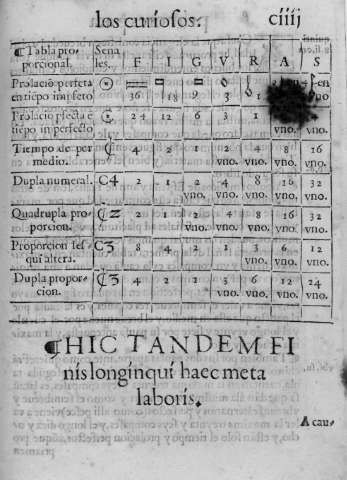 los curiosos: ciiij
¶ Tabla pro- Sena F I G V R A S
porcional. les..
Prolacio perfeta
en tiẽpo imṗfeto 36 18 9 3 1 no
Prolacio ꝑfecta e 24 12 6 3 1
tiẽpo imperfecto vno. vno.
Tiempo de per ₵ 4 2 1 2 4 8 16
medio. vno. vno. vno. vno.
Dupla numeral. C4 2 1 2 4 8 16 32
vno. vno. vno. vno. vno.
Quadrupla pro- ₵2 2 1 2 4 8 16 32
porcion. vno. vno. vno. vno. vno.
Proporcion ses- C3 8 4 2 1 3 6 12
qui altera. vno. vno. vno.
Dupla propor- ₵3 4 2 1 3 6 12 24
cion. vno. vno. vno. vno.
¶HIC TANDEM FI
nis longinqui haec meta
laboris.
A cau-